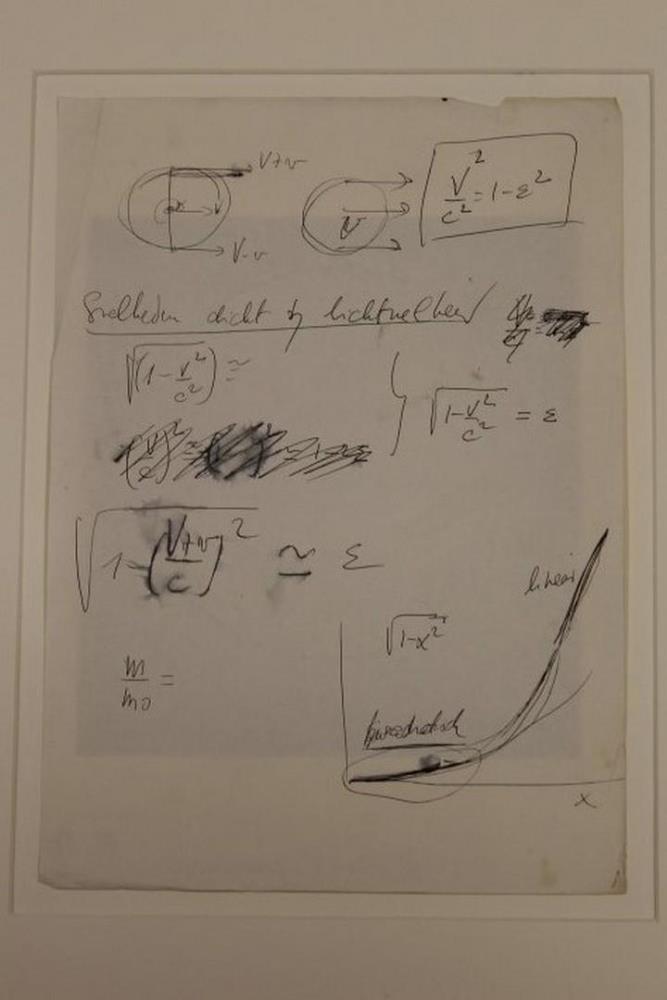 V+v
v
V-v
V
V²/c² = 1-ε²
Snelheden dicht bij lichtsnelheid
√(1-V²/c²) ≃
√(1-V²/c²) = ε
√(1-((V+v)/c)²) ≃ ε
lineair
√(1-x²)
m/m0 =
kwadratisch
x